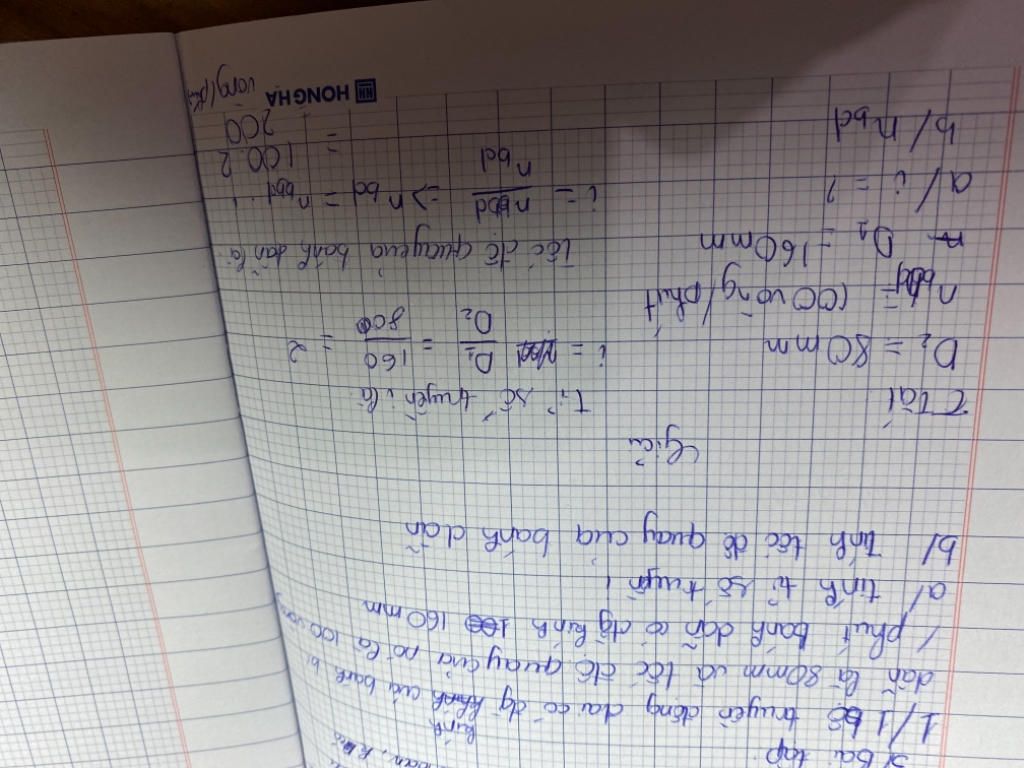 s/ bài tập
1/ 1 bộ truyền động đai có đg kính của bánh bị
dẫn là 80mm và tốc độ quay của nó là 100 vòng
/ phút bánh dẫn có đg kính 160 mm
a/ tính tỉ số truyền i
b/ Tính tốc độ quay của bánh dẫn
Giải
T tắt
D₂ = 80mm
nbd = 100 vòng/phút
D₁ = 160mm
a/ i = ?
b/ nbd
Tỉ số truyền i là:
i = D₁/D₂ = 160/80 = 2
Tốc độ quay của bánh dẫn là:
i = nbd/nbd => nbd = nbd . i
100.2
= 200 vòng/phút
HONG HA